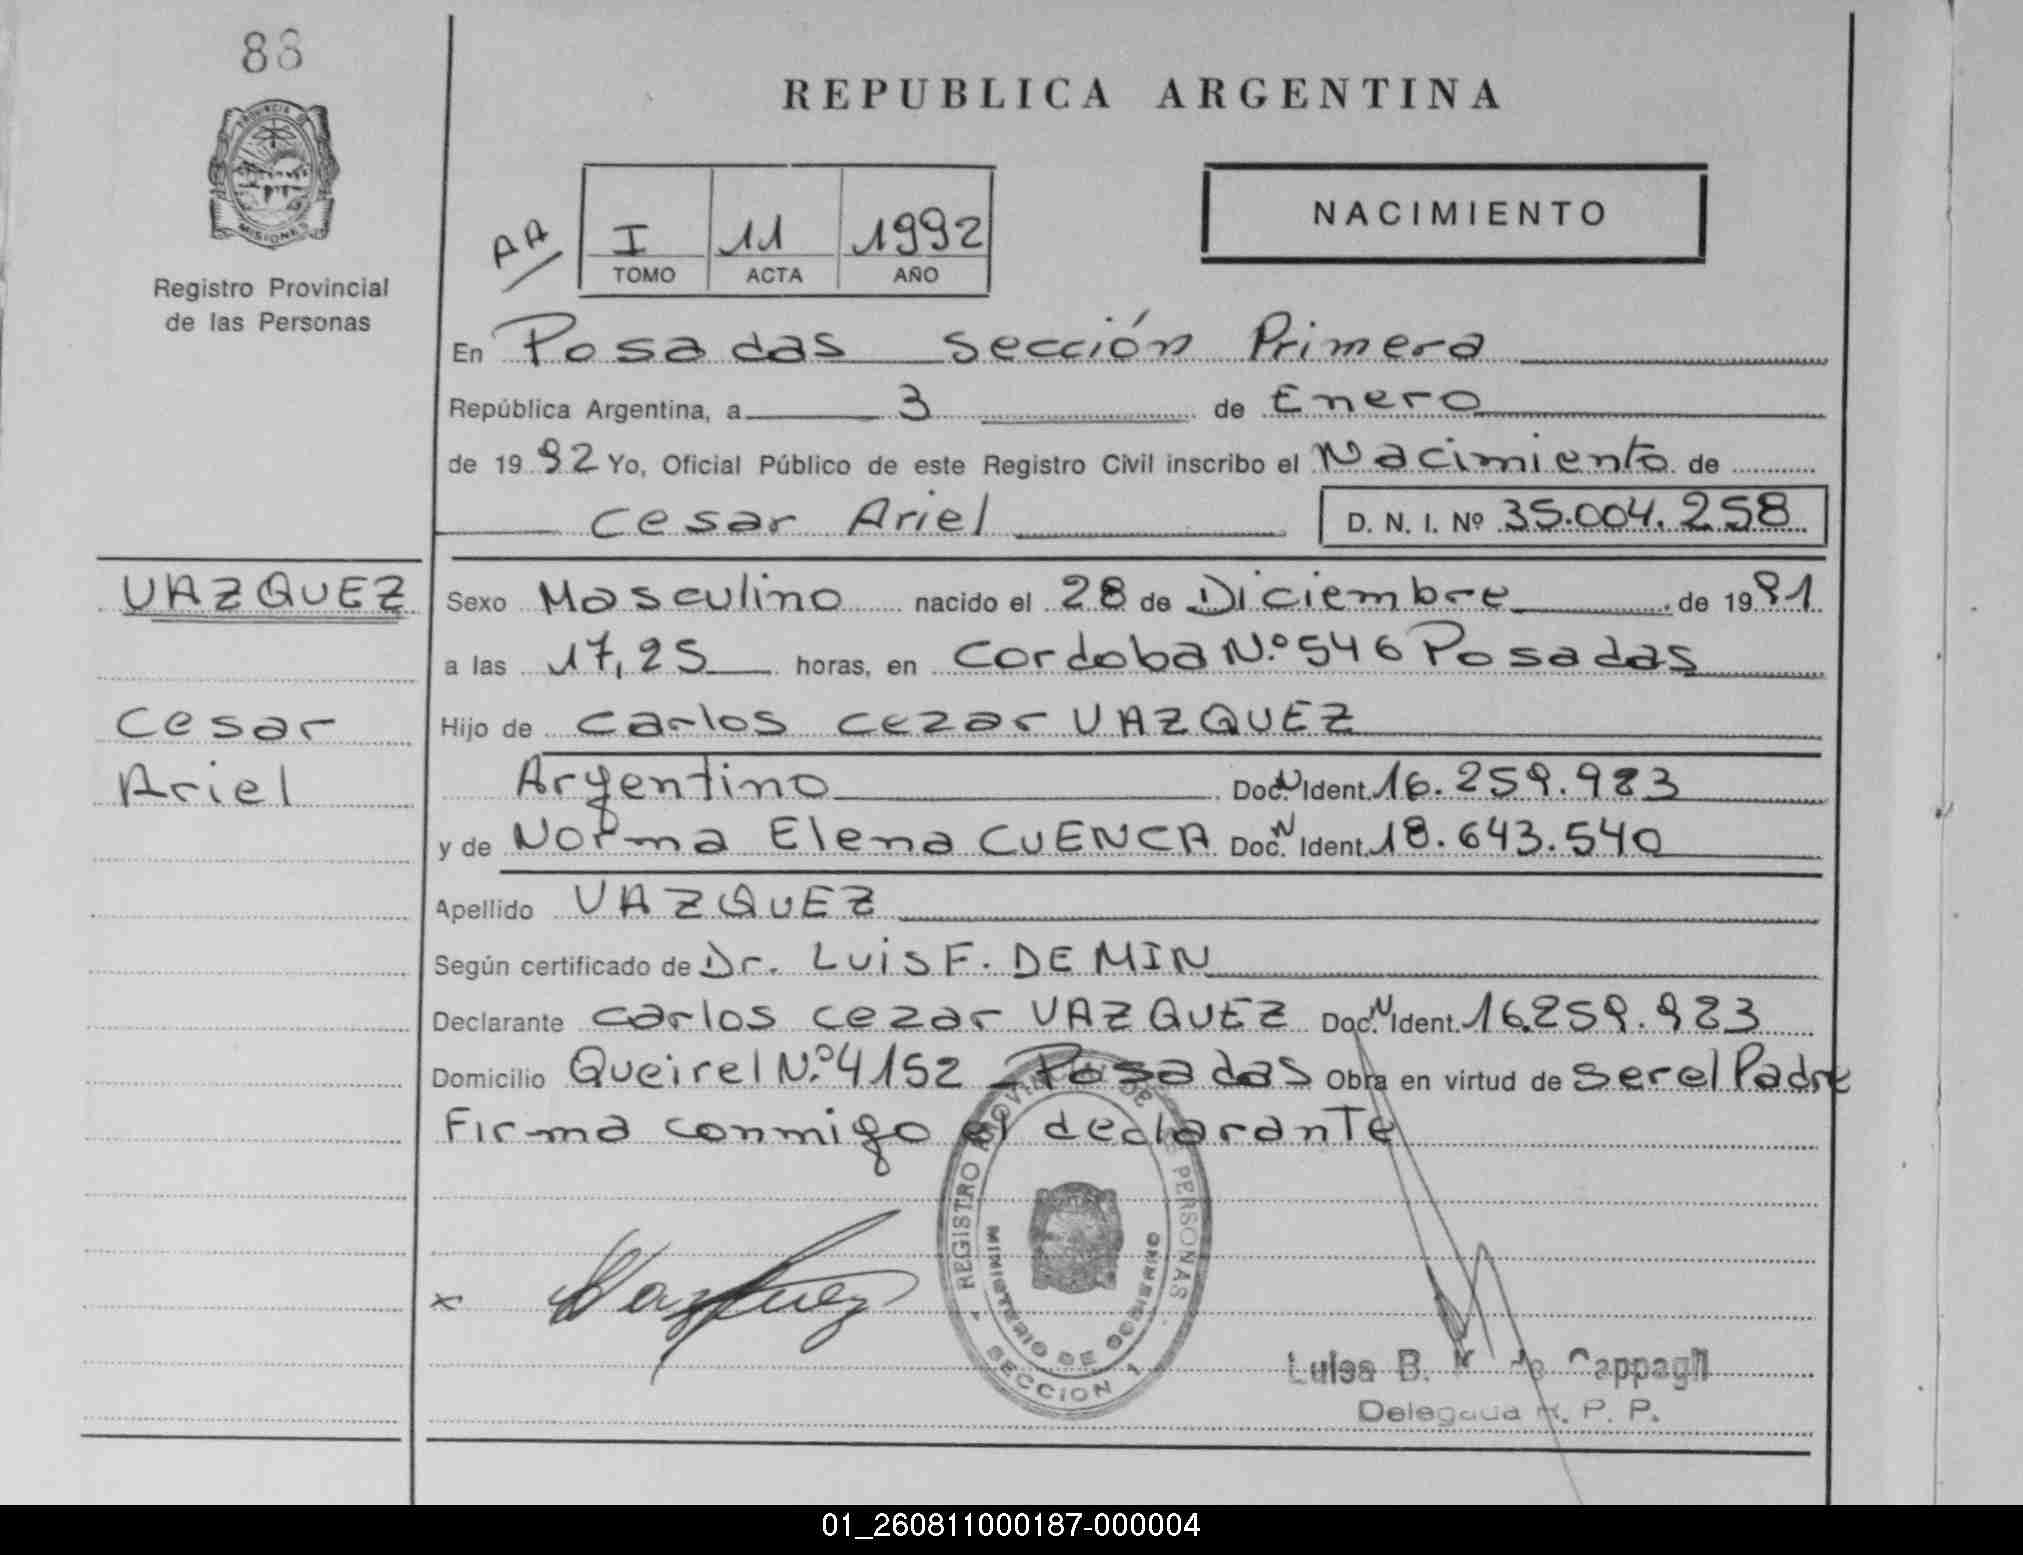 88
REPUBLICA ARGENTINA
PROVINCIA DE MISIONES
Registro Provincial
de las Personas
AA
I 11 1992
TOMO ACTA AÑO
NACIMIENTO
En Posadas Sección Primera
República Argentina, a 3 de Enero
de 1992 Yo, Oficial Público de este Registro Civil inscribo el Nacimiento de
Cesar Ariel D. N. I. Nº 35.004.258
VAZQUEZ
Cesar
Ariel
Sexo Masculino nacido el 28 de Diciembre de 1991
a las 17,25 horas, en Cordoba N.º 546 Posadas
Hijo de Carlos Cezar VAZQUEZ
Argentino Doc. N Ident. 16.259.983
y de Norma Elena CUENCA Doc. N Ident. 18.643.540
Apellido VAZQUEZ
Según certificado de Dr. LUIS F. DE MIN
Declarante Carlos Cezar VAZQUEZ Doc. N Ident. 16.259.983
Domicilio Queirel N.º 4152 - Posadas Obra en virtud de ser el Padre
Firma conmigo el declarante
REGISTRO PROVINCIAL DE LAS PERSONAS
MINISTERIO DE GOBIERNO
SECCION 1
x Vazquez
Luisa B. de Cappagli
Delegada R. P. P.
01_260811000187-000004